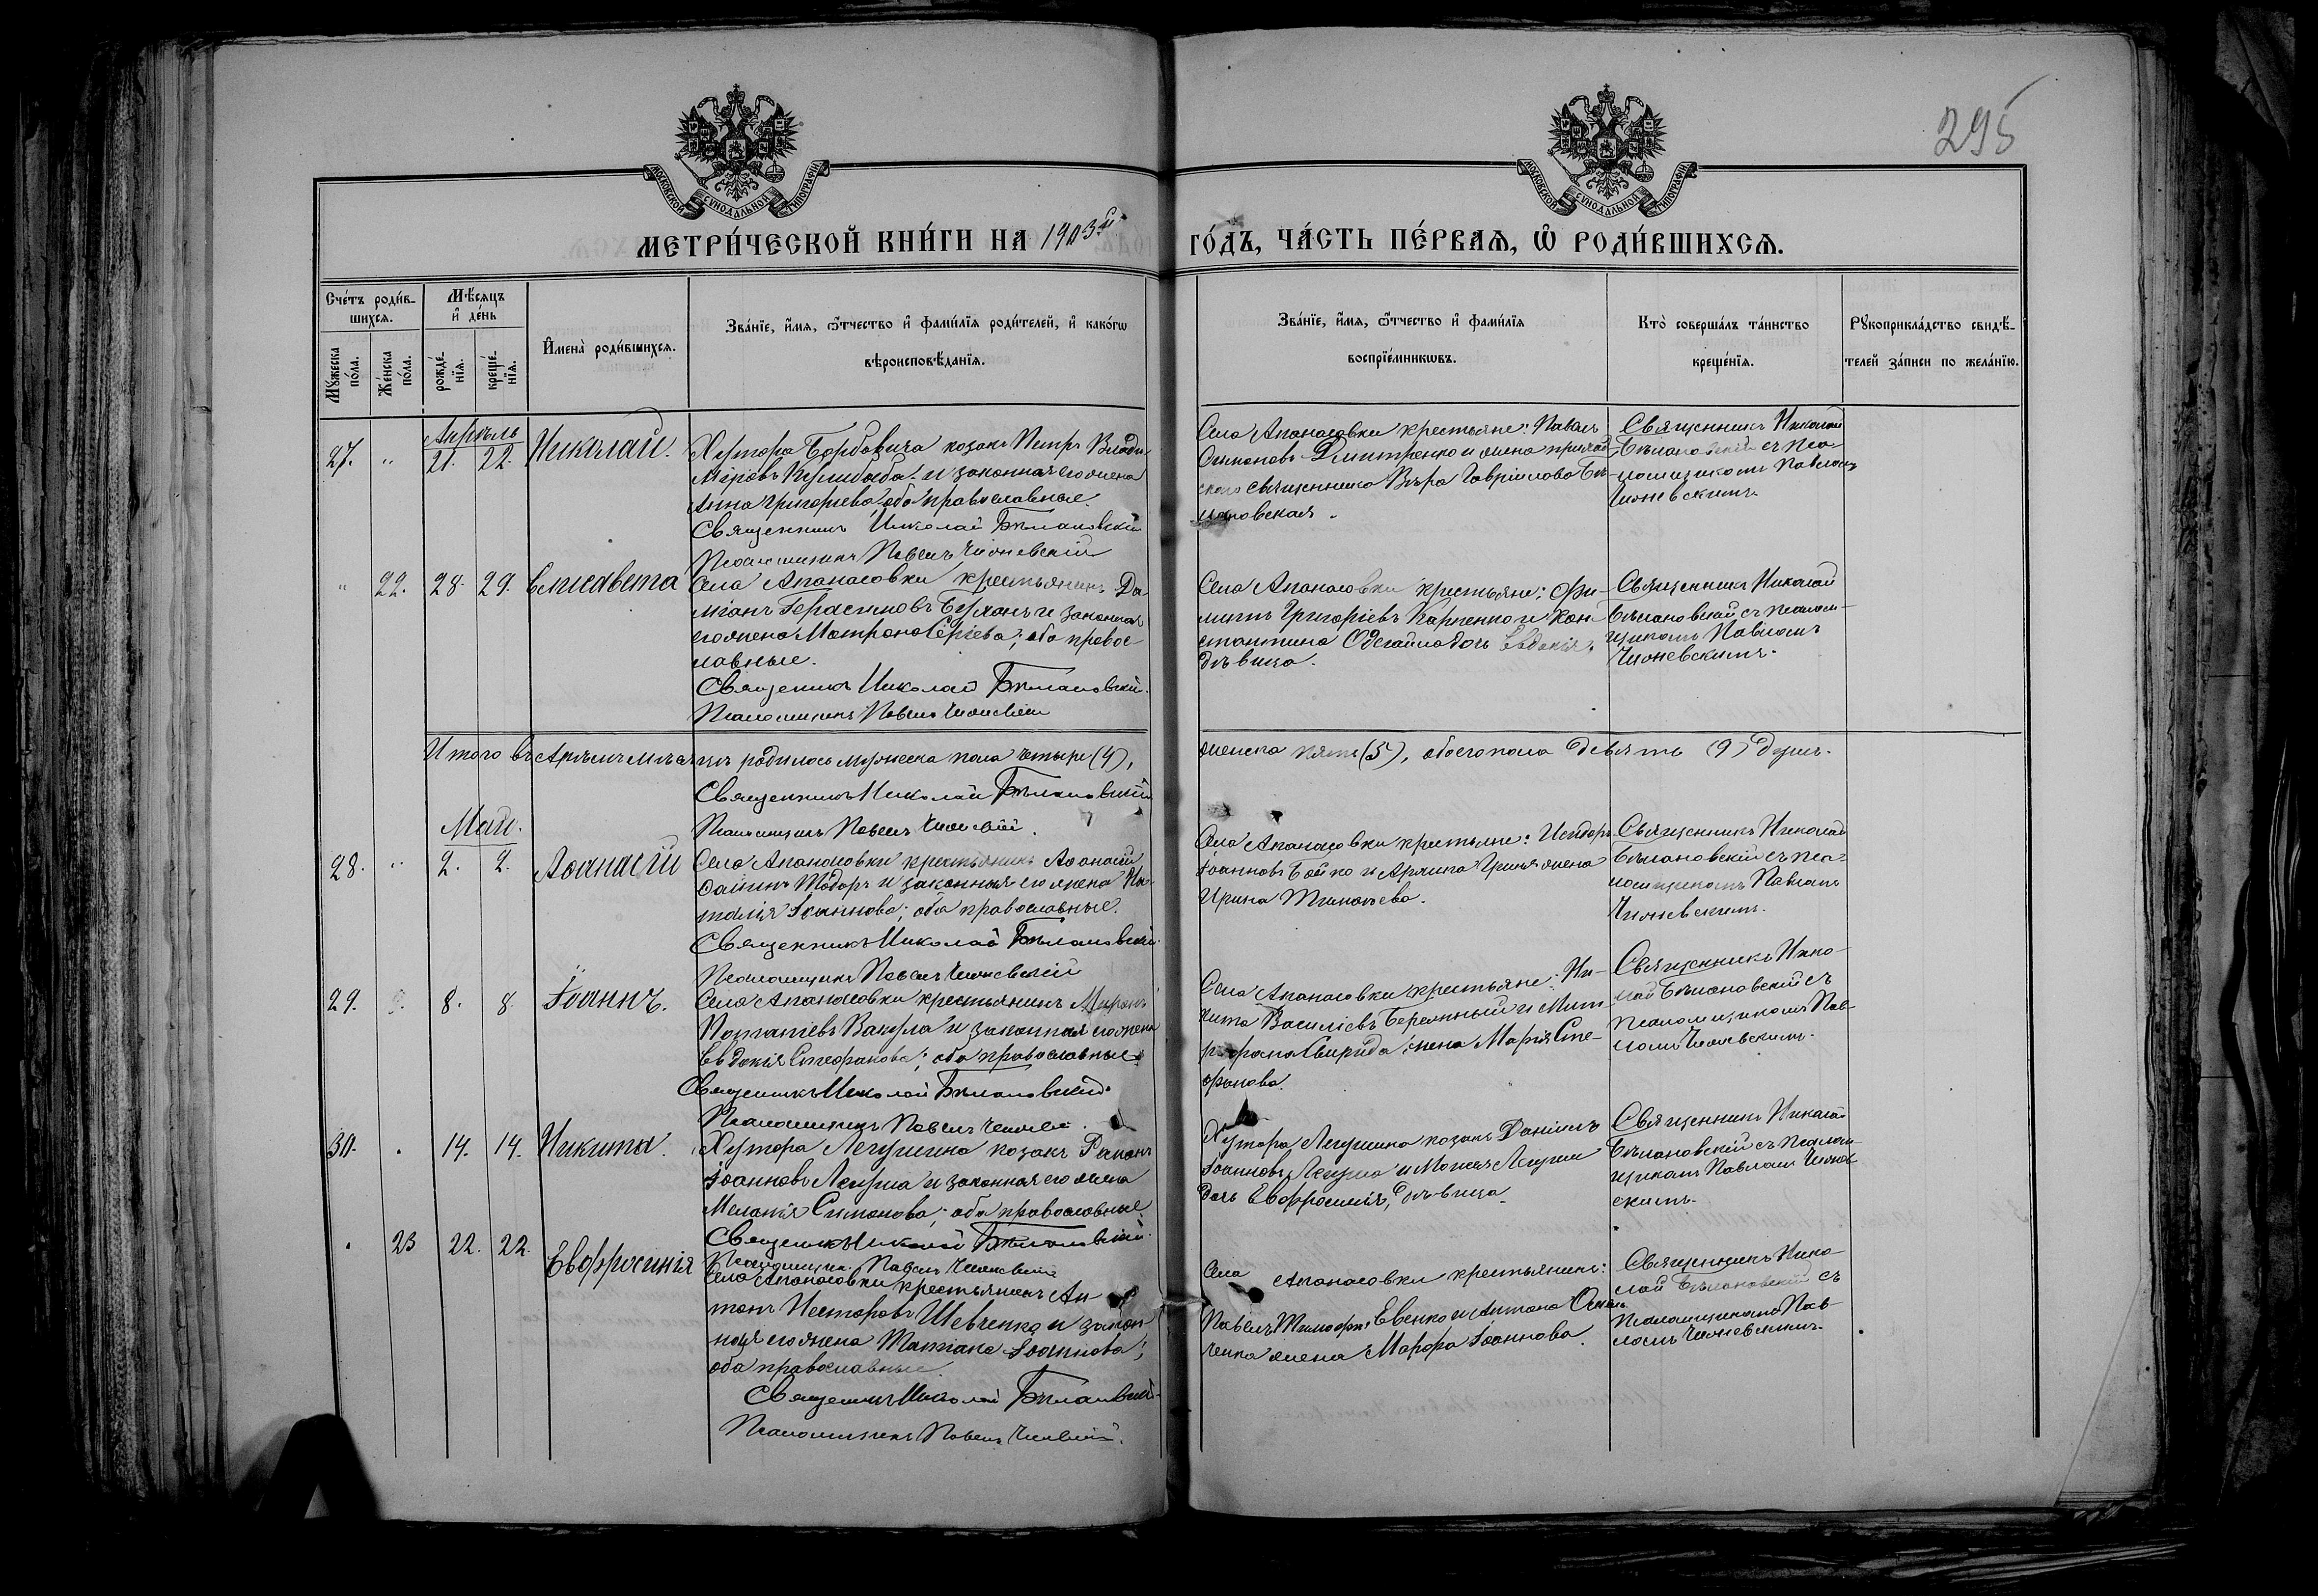 295
МОСКОВСКОЙ СѴНОДАЛЬНОЙ ТИПОГРАФІИ
МОСКОВСКОЙ СѴНОДАЛЬНОЙ ТИПОГРАФІИ
МЕТРИ́ЧЕСКОЙ КНИ́ГИ НА 1903й
ГО́ДЪ, ЧА́СТЬ ПЕ́РВАѦ, Ѡ РОДИ́ВШИХСѦ.
Сче́тъ роди́в-
шихсѧ.
Мꙋ́жеска по́ла.
Же́нска по́ла.
Мѣ́сѧцъ
и҆ де́нь
рожде́-
нїѧ.
креще́-
нїѧ.
И҆мена̀ роди́вшихсѧ.
Зва́нїе, и҆́мѧ, ѻ҆́тчество и҆ фами́лїѧ роди́телей, и҆ како́гѡ
вѣроисповѣ́данїѧ.
Зва́нїе, и҆́мѧ, ѻ҆́тчество и҆ фами́лїѧ
воспрїе́мникѡвъ.
Кто̀ соверша́лъ та́инство
креще́нїѧ.
Рꙋкоприкла́дство свидѣ́-
телей за́писи по жела́нїю.
Апрѣль
27. " 21. 22. Николай.
Хутора Борбовича козакъ Петръ Влади-
міровъ Кулибаба и законная его жена
Анна Григорьева, оба православные.
Священникъ Николай Бѣлановскій
Псаломщикъ Павелъ Чижевскій
Села Апанасовки крестьяне: Павелъ
Симоновъ Дмитренко и жена приход-
скаго священника Вѣра Гавріилова Бѣ-
лановская.
Священникъ Николай
Бѣлановскій съ пса-
ломщикомъ Павломъ
Чижевскимъ.
" 22. 28. 29. Елисавета
Села Апанасовки крестьянинъ Да-
міанъ Герасимовъ и законная
его жена Матрона Сергіева; оба правос-
лавные.
Священникъ Николай Бѣлановскій.
Псаломщикъ Павелъ Чижевскій
Села Апанасовки крестьяне: Фи-
липпъ Григоріевъ Карпенко и Кон-
стантина дочь Евдокія,
дѣвица.
Священникъ Николай
Бѣлановскій съ псалом-
щикомъ Павломъ
Чижевскимъ.
Итого въ Апрѣлѣ мѣсяцѣ родилось мужеска пола четыре (4),
женска пять (5), обоего пола девять (9) душъ.
Священникъ Николай Бѣлановскій
Псаломщикъ Павелъ Чижевскій.
Май.
28. " 2. 2. Аѳанасій
Села Апанасовки крестьянинъ Аѳанасій
Тодоръ и законная его жена На-
талія Іоаннова; оба православные.
Священникъ Николай Бѣлановскій.
Псаломщикъ Павелъ Чижевскій
Села Апанасовки крестьяне: Исидоръ
Іоанновъ Бойко и жена
Ирина Тимоѳеева.
Священникъ Николай
Бѣлановскій съ пса-
ломщикомъ Павломъ
Чижевскимъ.
29. 8. 8. Іоаннъ.
Села Апанасовки крестьянинъ Миронъ
Потапіевъ Вакула и законная его жена
Евдокія Стефанова; оба православные.
Священникъ Николай Бѣлановскій.
Псаломщикъ Павелъ Чижевскій.
Села Апанасовки крестьяне: Ни-
кита Василіевъ Бережный и Мит-
рофана Свирида жена Марія Сте-
фанова.
Священникъ Нико-
лай Бѣлановскій съ
псаломщикомъ Пав-
ломъ Чижевскимъ.
30. 14. 14. Никита.
Хутора Легушина козакъ Романъ
Іоанновъ Легуша и законная его жена
Меланія Симонова; оба православные.
Священникъ Николай Бѣлановскій.
Псаломщикъ Павелъ Чижевскій
Хутора Легушина козакъ Даніилъ
Іоанновъ Легуша и Моисея Легуши
дочь Евфросинія, дѣвица.
Священникъ Николай
Бѣлановскій съ псалом-
щикомъ Павломъ Чижев-
скимъ.
23 22. 22. Евфросинія
Села Апанасовки крестьянинъ Ан-
тонъ Несторовъ Шевченко и закон-
ная его жена Татіана Іоаннова;
оба православные.
Священникъ Николай Бѣлановскій.
Псаломщикъ Павелъ Чижевскій.
Села Апанасовки крестьянинъ:
Павелъ Тимоѳеевъ Евенко и Антона
жена Марфа Іоаннова.
Священникъ Нико-
лай Бѣлановскій съ
псаломщикомъ Пав-
ломъ Чижевскимъ.